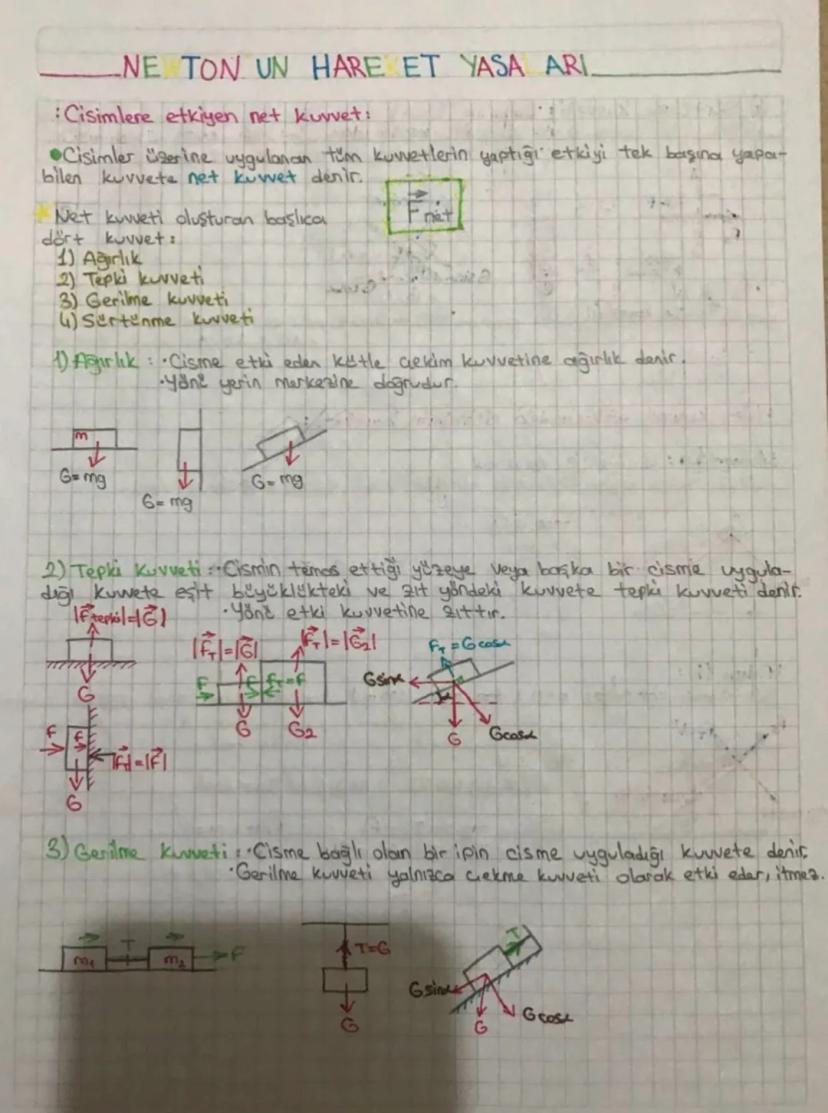 NEWTON UN HAREKET YASALARI
: Cisimlere etkiyen net kuvvet :
•Cisimler üzerine uygulanan tüm kuvvetlerin yaptığı etkiyi tek başına yapa-
bilen kuvvete net kuvvet denir.
F net
Net kuvveti oluşturan başlıca
dört kuvvet :
1) Ağırlık
2) Tepki kuvveti
3) Gerilme kuvveti
4) Sürtünme kuvveti
1) Ağırlık : •Cisme etki eden kütle çekim kuvvetine ağırlık denir.
•Yönü yerin merkezine doğrudur.
m
G=mg
G=mg
G=mg
2) Tepki kuvveti : •Cismin temas ettiği yüzeye veya başka bir cisme uygula-
dığı kuvvete eşit büyüklükteki ve zıt yöndeki kuvvete tepki kuvveti denir.
•Yönü etki kuvvetine zıttır.
|F tepki|=|G|
G
|FT|=|G| |FT|=|G2|
F F FT=F
G G2
FT=Gcosα
Gsinα α
G Gcosα
F F
|FT|=|F|
G
3) Gerilme Kuvveti : •Cisme bağlı olan bir ipin cisme uyguladığı kuvvete denir.
•Gerilme kuvveti yalnızca çekme kuvveti olarak etki eder, itmez.
m1 T m2 F
T=G
G
T
Gsinα
G Gcosα